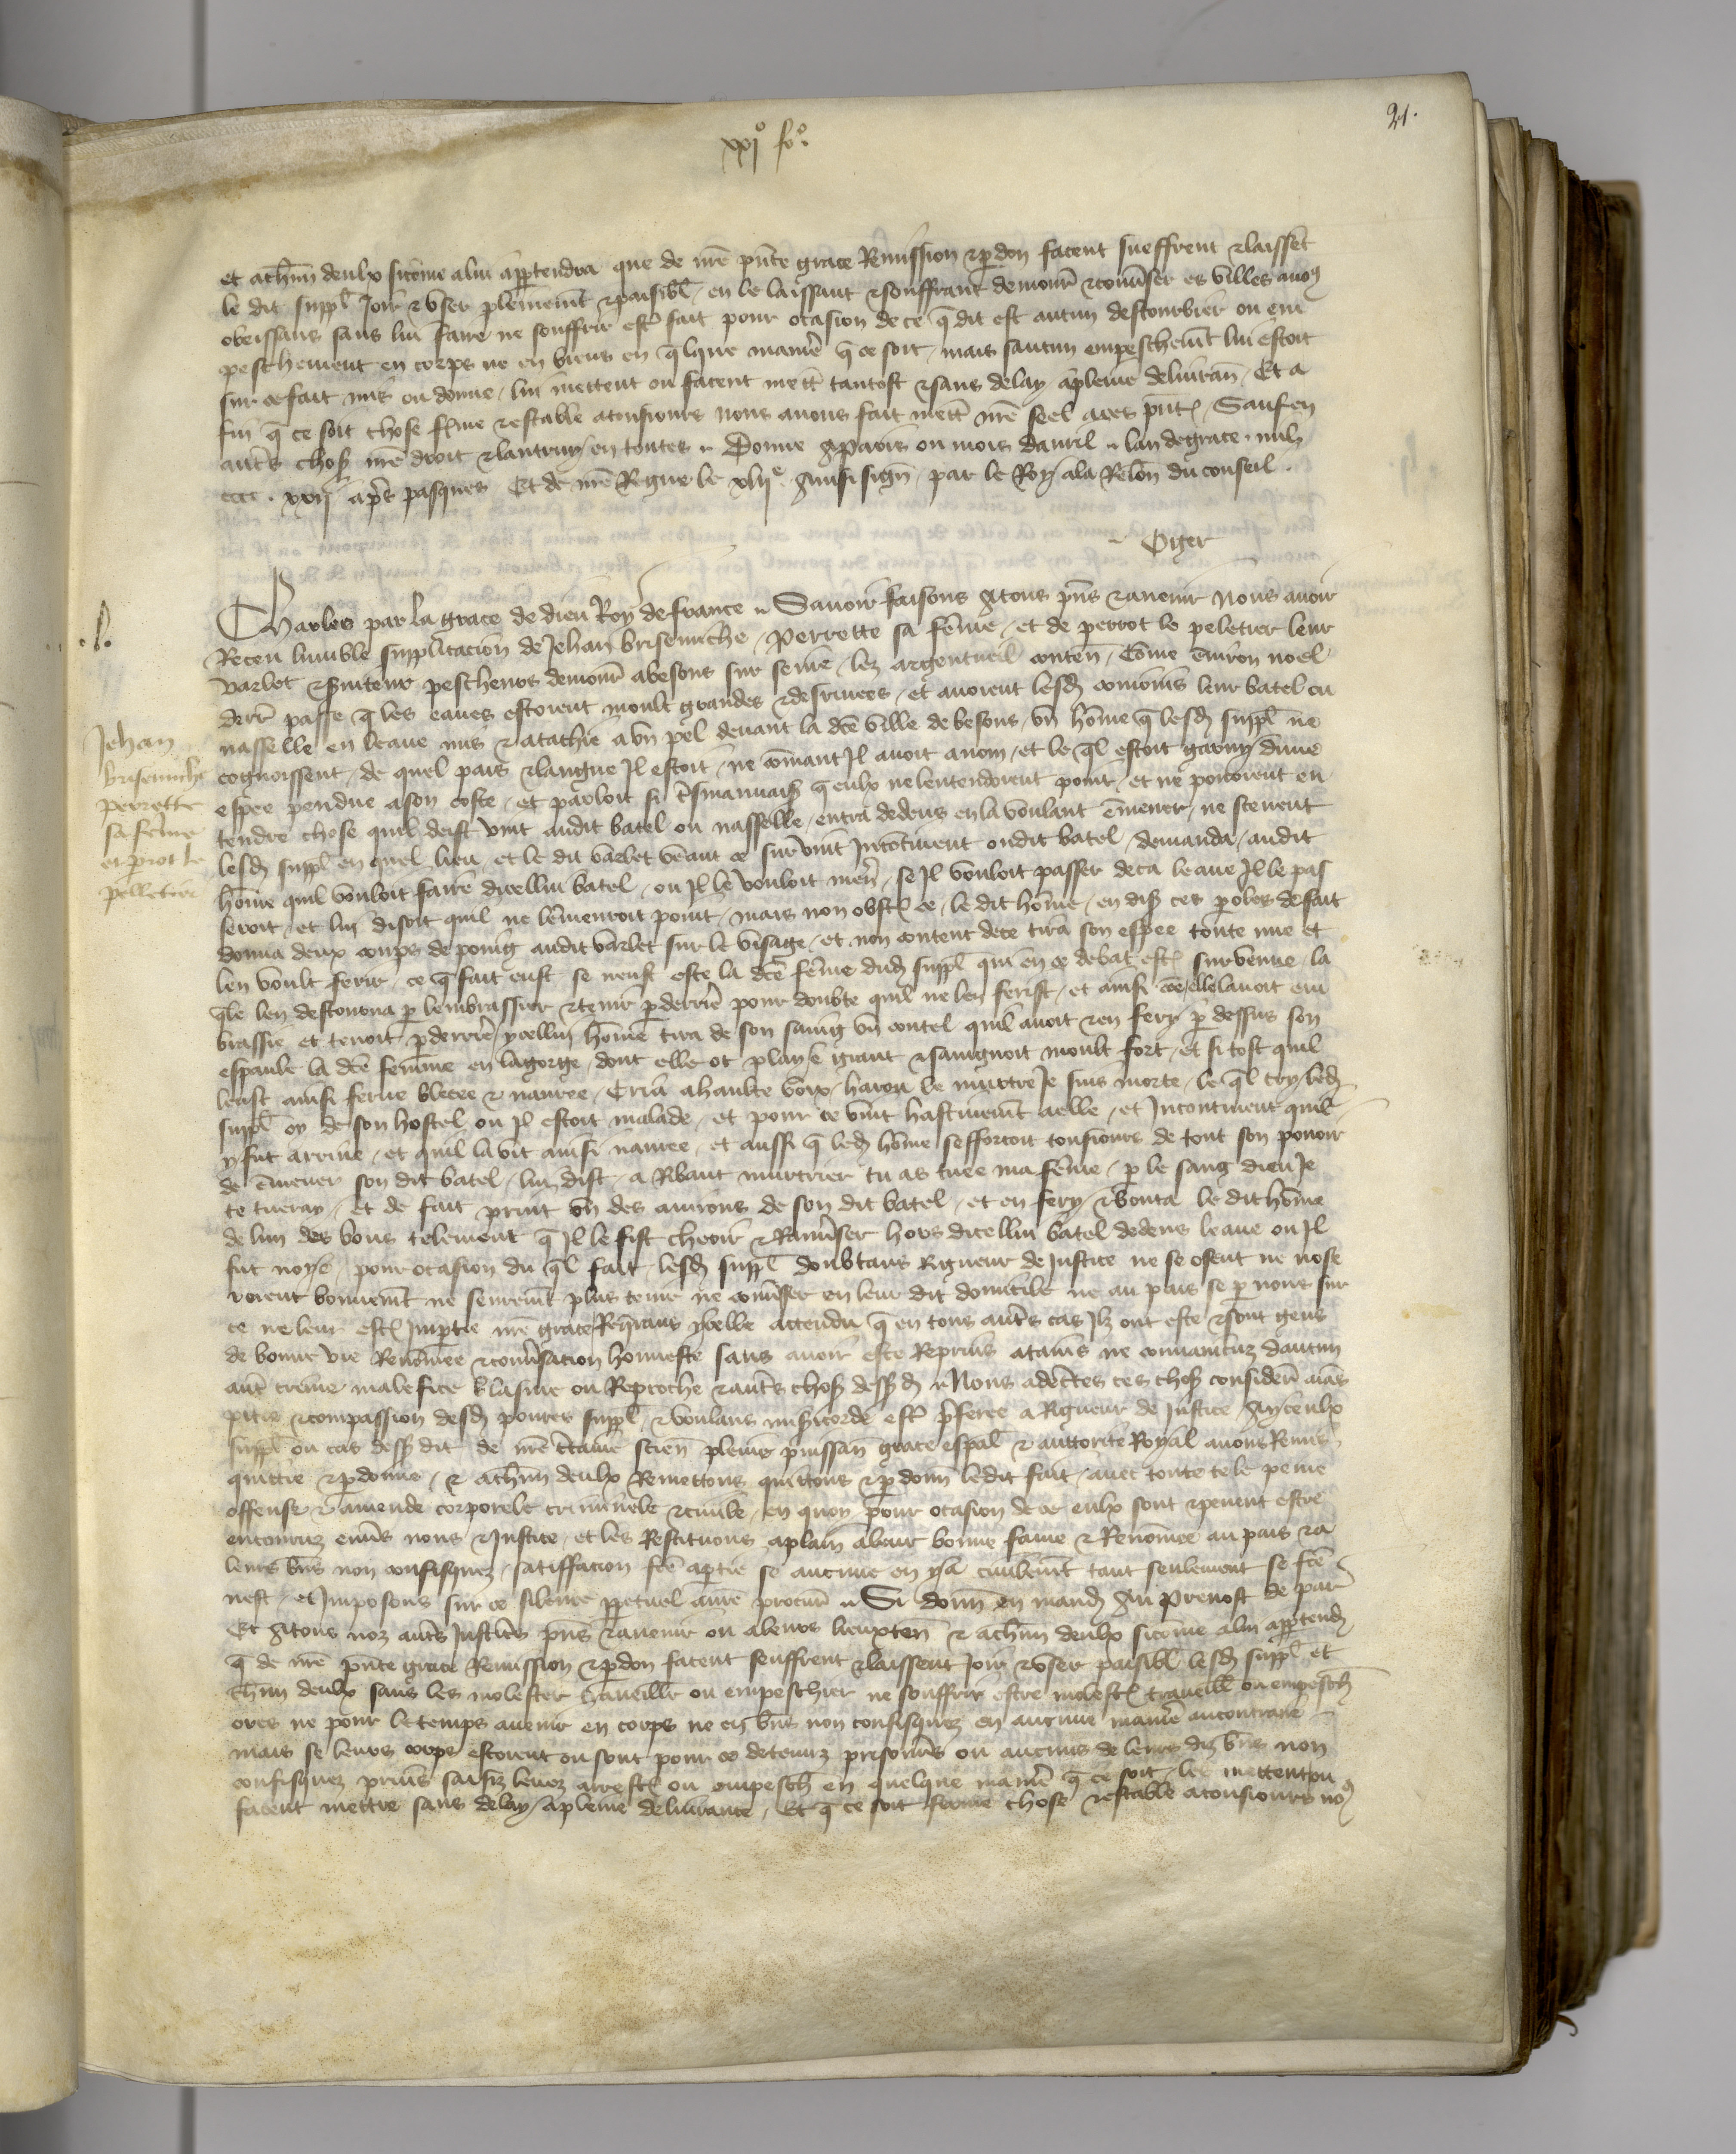 21.
xxj° fo°.
et achūn deulx sicōme a lui ap̄ptendra que de nr̄e pn̄te grace Remission & p̄don facent sueffrent & laissēt
le dit suppl̄ Joir & vser plēnemēt & paisibl̄ en le laissant & souffrant demour̄ & conūser es villes a nog
obeissans sans lui faire ne souffrir estr̄ fait pour ocasion de ce q̄ dit est aucun destourbier ou em
peschement en corps ne en biens en q̄lque manier̄ q̄ ce soit / mais saucun empeschemēt lui estoit
sur ce fait mis ou donne / lui mettent ou facent mett̄ tantost & sans delay a pleine deliuran̄ / Et a
fin q̄ ce soit chose fr̄me & estable a tousiours nous auons fait mett̄ nr̄e seel a ces pn̄t̄ / Sauf en
aut̄s chos̄ nr̄e droit & lautruy en toutes // Donne a paris ou mois dauril // lan de grace . mil
cccc . xxij ap̄s pasques Et de nr̄e Regne le xlij^e Ainsi sign̄ / par le Roy a la Relōn du conseil .
Oger
Charles par la grace de dieu Roy de france // Sauoir faisons A tous pn̄s & auenir Nous auoir
Receu lumble supplicacion de Jehan brisemiche / Perrette sa fēme / et de perrot le peletier leur
varlet & s̄uiteur pescheurs demour̄ a besons sur seine / lez argentueil conten̄ / Cōme enuiron noel
derr̄ passe q̄ les eaues estoient moult grandes & desriuees / et auoient lesd̄ conioins leur batel ou
nasselle en leaue mis & atachie a vn pel deuant la dc̄e ville de besons / vn hōme q̄ lesd̄ suppl̄ ne
cognoissent / de quel pais & langue Jl estoit / ne cōmant Jl auoit a nom / et le q̄l estoit garny dune
espee pendue a son coste / et parloit si t̄s mauuais̄ q̄ eulx ne lentendoient point / et ne pouoient en
tendre chose quil deist vint audit batel ou nasselle / entra dedens en la voulant ēmener / ne sceuent
lesd̄ suppl̄ en quel lieu / et le dit varlet veāut ce suruīnt Jncōtinent oudit batel / demanda / audit
hōme quil vouloit faire dicellui batel / ou Jl le vouloit men̄ / se Jl vouloit passer deca leaue Jl le pas
seroit / et lui disoit quil ne lēmenroit point / mais non obst̄ ce / le dit hōme / en dis̄ ces p̄oles de fait
donna deux coups de poing audit varlet sur le visage / et non content de ce tira son espee toute nue et
len voult ferir / ce q̄ fait eust se neust este la dc̄e fēme dud̄ suppl̄ qui en ce debat est̄ suruenue / la
q̄le len destourna p̄ lembrassier & tenir p̄ derrier̄ pour doubte quil ne len ferist / et ainsi cōe elle lauoit em
brassie et tenoit p̄ derrier̄ / ycellui hōme tira de son saing vn coutel quil auoit & en fery p̄ dessus son
espaule la dc̄e femme en la gorge / dont elle ot playe grant & saingnoit moult fort / et si tost quil
leust ainsi ferue blecee & nauree / Cria a haulte voix / harou le murtre Je suis morte / le q̄l cry / led̄
suppl̄ oy de son hostel ou Jl estoit malade / et pour ce vint hastiuemēt a elle / et Jncontinent quil
y fut arriue / et quil la vit ainsi nauree / et aussi q̄ led̄ hōme sefforcoit tousiours de tout son pouoir
de ēmener son dit batel / lui dist / a Ribaut murtrier tu as tuee ma fēme / p̄ le sang dieu Je
te tueray / Et de fait print vn des auirons de son dit batel / et en fery & bouta le dit hōme
de lun des bous telement q̄ Jl le fist cheoir & Ranūser hors dicellui batel dedens leaue ou Jl
fut noye / pour ocasion du q̄l fait lesd̄ suppl̄ doubtans Rigueur de Justice ne se osent ne nose
roient bonnemēt ne seuremēt plus tenir ne conūser en leur dit domicile ne au pais se p̄ nous sur
ce ne leur est̄ Jmp̄tie nr̄e grace Req̄rans ycelle attendu q̄ en tous aut̄s cas Jlz ont este & sont gens
de bonne vie Renōmee & conūsacion honneste sans auoir este Reprins atains ne conuaincuz daucun
aut̄ crime malefice blasme ou Reproche & aut̄s chos̄ dess̄ d̄ // Nous adc̄tes ces chos̄ consider̄ aiās
pitie & compassion desd̄ poures suppl̄ & voulans mis̄icorde estr̄ p̄feree a Rigueur de Justice / A yceulx
suppl̄ ou cas dess̄ dit de nr̄e c̄taine scien̄ pleine puissan̄ grace esp̄al & auttorite Royal auons Remis
quittie & p̄donne / & achūn deulx Remettons quittons & p̄donn̄ ledit fait / auec toute tele peine
offense & amende corporele criminele & ciuile / en quoy pour ocasion de ce eulx sont & peuent estre
encouruz enūs nous & Justice / et les Restituons a plain a leur bonne fame & Renōmee au pais & a
leurs bn̄s non confisquez / satiffacion fc̄e a p̄tie se aucune en y a ciuilemēt tant seulement se fc̄e
nest / et Jmposons sur ce silence p̄petuel a nr̄e procur̄ // Si donn̄ en mand̄ Au Preuost de par̄
Et A tous noz aut̄s Justic̄s pn̄s & auenir ou a leurs lieuxten̄ & achūn deulx sicōme a lui app̄tend̄
q̄ de nr̄e pn̄te grace Remission & p̄don facent seuffrent & laissent Joir & vser paisibl̄ lesd̄ suppl̄ et
chūn deulx sans les molester trauaillr̄ ou empeschier ne souffrir estre molest̄ traueill̄ ou empesch̄
ores ne pour le temps auenir en corps ne en bn̄s non confisquez en aucune manier̄ au contraire
mais se leurs corps estoient ou sont pour ce detenuz prisonn̄s ou aucuns de leurs diz bn̄s non
confisquez prins saisiz leuez arrest̄ ou empesch̄ en quelque manier̄ q̄ ce soit / les mettent ou
facent mettre sans delay / a pleine deliurance / Et q̄ ce soit ferme chose & estable a tousiours no9
Jehan
brisemiche
perrette
sa fēme
et p̄rot le
pelletier